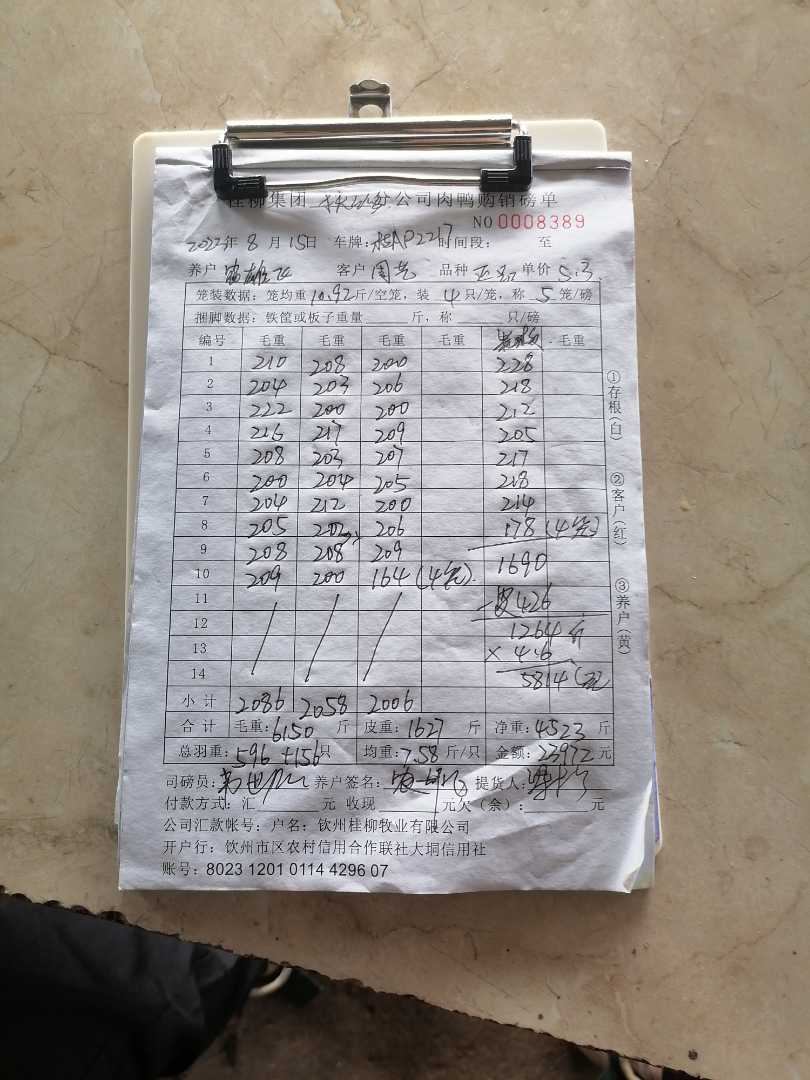 桂柳集团 公司肉鸭购销磅单
NO 0008389
2022年 8 月 15日 车牌: 桂AP2217 时间段: 至
养户 客户 周光 品种 单价 5.3
笼装数据: 笼均重 10.92 斤/空笼, 装 4 只/笼, 称 5 笼/磅
捆脚数据: 铁筐或板子重量 斤, 称 只/磅
编号 毛重 毛重 毛重 毛重 毛重
1 210 208 200 228
2 204 203 206 218
3 222 200 200 212
4 216 217 209 205
5 208 203 207 217
6 200 204 205 218
7 204 212 200 214
8 205 202 206 178 (4笼)
9 208 208 209 1690
10 209 200 164 (4笼)
11 -皮426
12 1264斤
13 ×4.6
14 5814(元
小计 2086 2058 2006
合计 毛重: 6150 斤 皮重: 1627 斤 净重: 4523 斤
总羽重: 596 +156 只 均重: 7.58 斤/只 金额: 23972 元
司磅员: 养户签名: 提货人:
付款方式: 汇 元 收现 元欠(余): 元
公司汇款帐号: 户名: 钦州桂柳牧业有限公司
开户行: 钦州市区农村信用合作联社大垌信用社
账号: 8023 1201 0114 4296 07
①存根(白)
②客户(红)
③养户(黄)